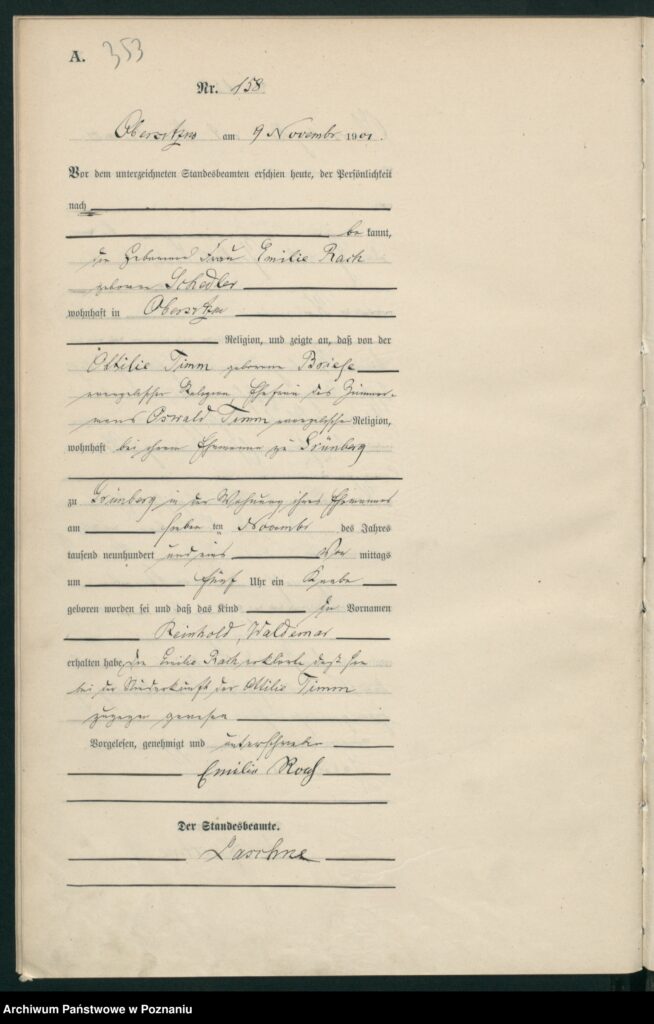 A. 353
Nr. 158
Obersitzko am 9 Novembr 1901.
Vor dem unterzeichneten Standesbeamten erschien heute, der Persönlichkeit
nach
be kannt,
die Hebamme Frau Emilie Rach
geborene Schedler
wohnhaft in Obersitzko
Religion, und zeigte an, daß von der
Ottilie Timm geborene Boiese
evangelischer Religion, Ehefrau des Zimmer-
manns Oswald Timm evangelischer Religion,
wohnhaft bei ihrem Ehemanne zu Grünberg
zu Grünberg in der Wohnung ihres Ehemannes
am sieben ten Novembr des Jahres
tausend neunhundert und eins Vor mittags
um fünf Uhr ein Knabe
geboren worden sei und daß das Kind die Vornamen
Reinhold, Waldemar
erhalten habe, Die Emilie Rach erklärte, daß sie
bei der Niederkunft der Ottilie Timm
zugegen gewesen
Vorgelesen, genehmigt und unterschrieben
Emilie Rach
Der Standesbeamte.
Laschne
Archiwum Państwowe w Poznaniu